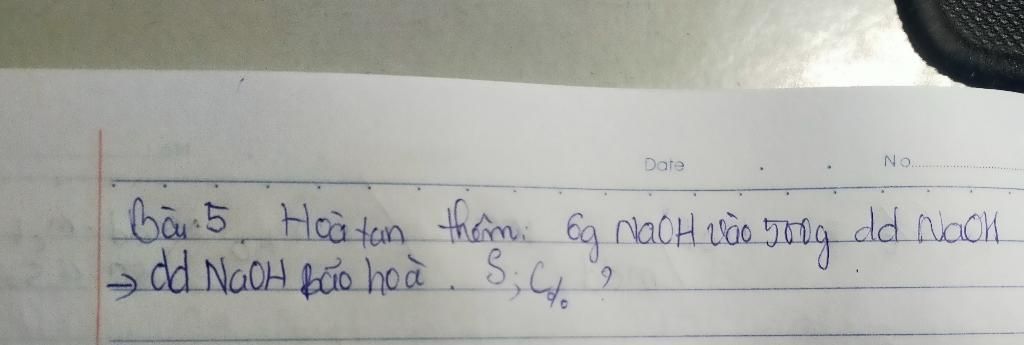 Date No.
Bài 5. Hoà tan thêm 6g NaOH vào 500g dd NaOH
→ dd NaOH bão hoà. S; C% ?